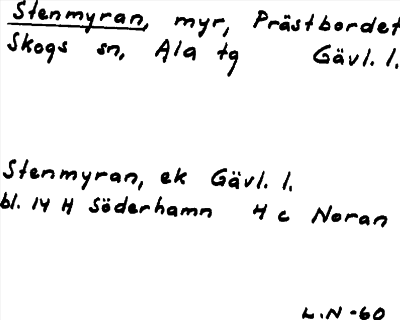 Stenmyran, myr, Prästbordet
Skogs sn, Ala tg Gävl. l.
Stenmyran, ek Gävl. l.
bl. 14 H Söderhamn 4 c Noran
L.N -60